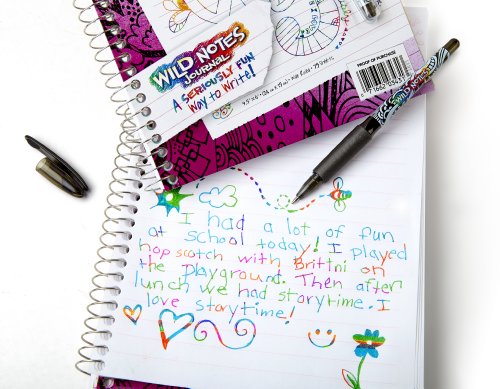 WILD NOTES
JOURNAL
A SERIOUSLY FUN
Way to Write!
PROOF OF PURCHASE
WILD NOTES
I had a lot of fun
at school today! I played
hopscotch with Brittni on
the playground. Then after
lunch we had storytime. I
love storytime!